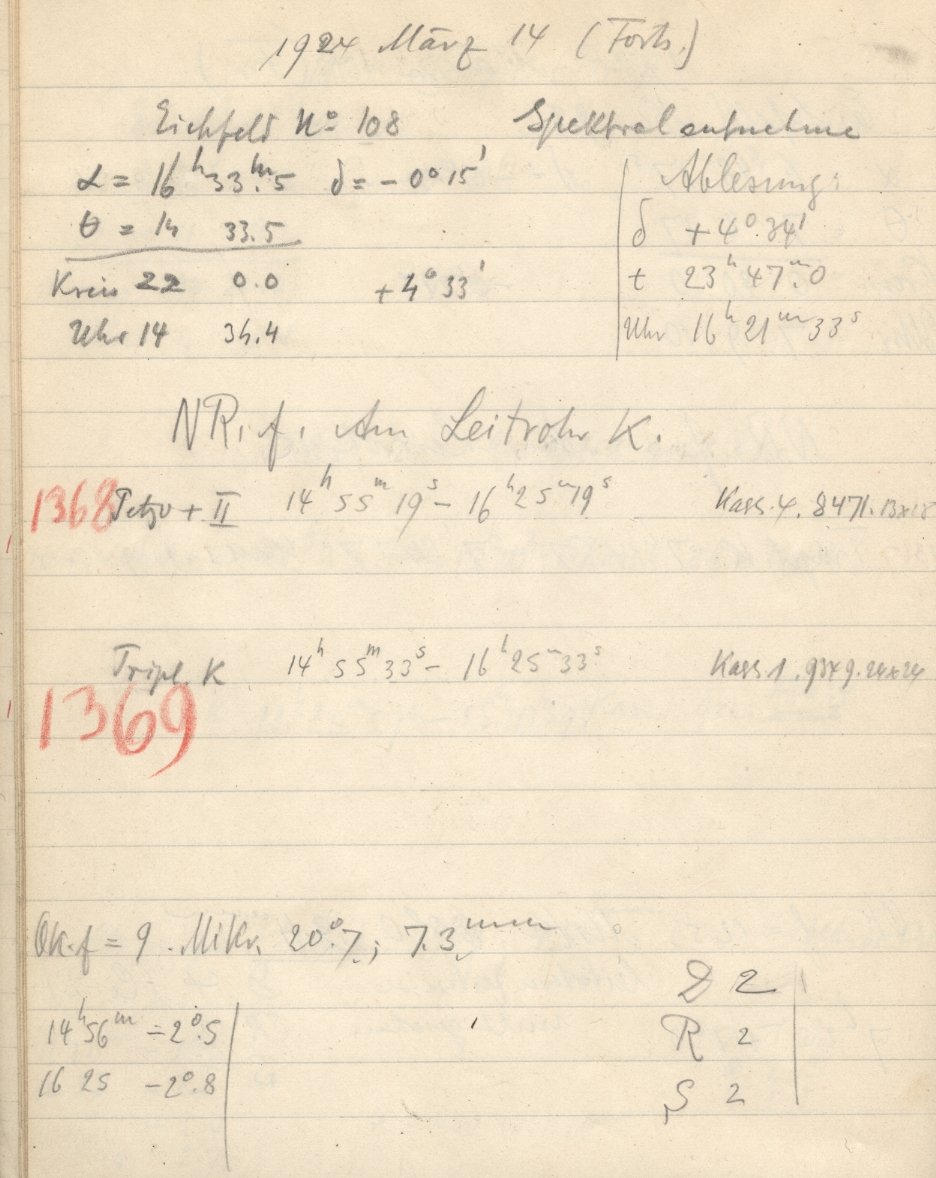 1924 März 14 (Forts.)
Eichfeld No 108 Spektralaufnahme
α = 16h 33m.5 δ = - 0° 15'
θ = 14 33.5
Kreis 22 0.0 + 4° 33'
Uhr 14 34.4
Ablesung:
δ + 4° 34'
t 23h 47m.0
Uhr 16h 21m 33s
NR. f. Am Leitrohr K.
1368 Petzv + II 14h 55m 19s - 16h 25m 19s Kass. 4. 8471. 13x18
Tripl. K 14h 55m 33s - 16h 25m 33s Kass 1. 9x9. 24x24
1369
Ok. f = 9. Mikr. 20°.7; 7.3mm
14h 56m -2°.5
16 25 -2°.8
D 2
R 2
S 2